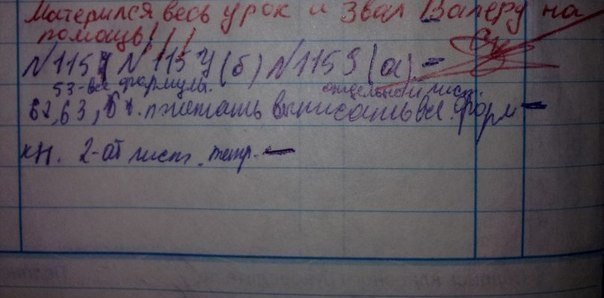 Матерился весь урок и звал Валеру на
помощь!!!
№1157 №1154 (б) №1159 (а) -
53-все формулы. отдельный лист.
62, 63, выписать все форм -
кн. 2- лист. тетр. -